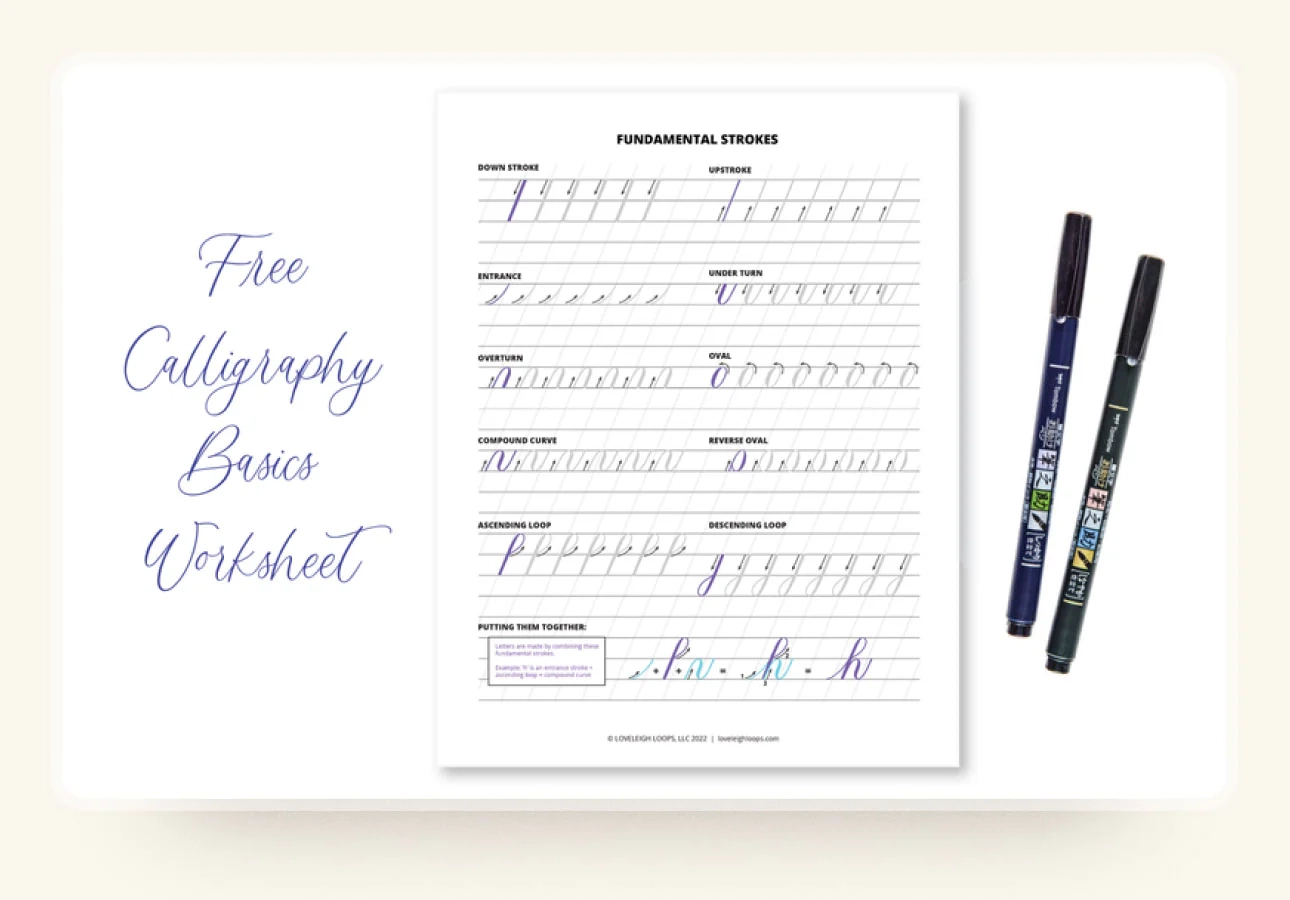 Free
Calligraphy
Basics
Worksheet
FUNDAMENTAL STROKES
DOWN STROKE
UPSTROKE
ENTRANCE
UNDER TURN
OVERTURN
OVAL
COMPOUND CURVE
REVERSE OVAL
ASCENDING LOOP
DESCENDING LOOP
PUTTING THEM TOGETHER:
Letters are made by combining these
fundamental strokes.
Example: 'h' is an entrance stroke +
ascending loop + compound curve
+ + = 1 2 3 = h
© LOVELEIGH LOOPS, LLC 2022 | loveleighloops.com
Tombow
Tombow